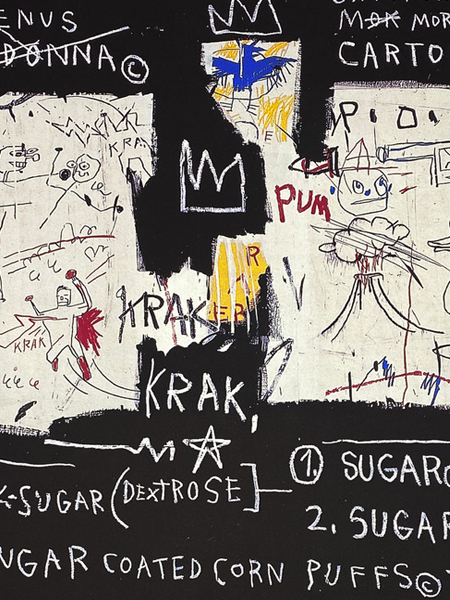 ENUS
DONNA©
MOK MOR
CARTO
KRA
P.O.
PUM
R
KRAK
ER
KRAK
KRAK,
-SUGAR (DEXTROSE]
1. SUGAR
2. SUGAR
UGAR COATED CORN PUFFS©